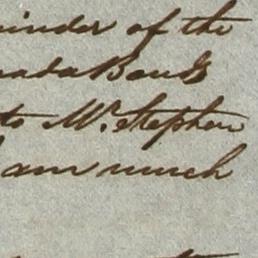 inder of the
nada Bonds
to Mr. Stephen
I am much